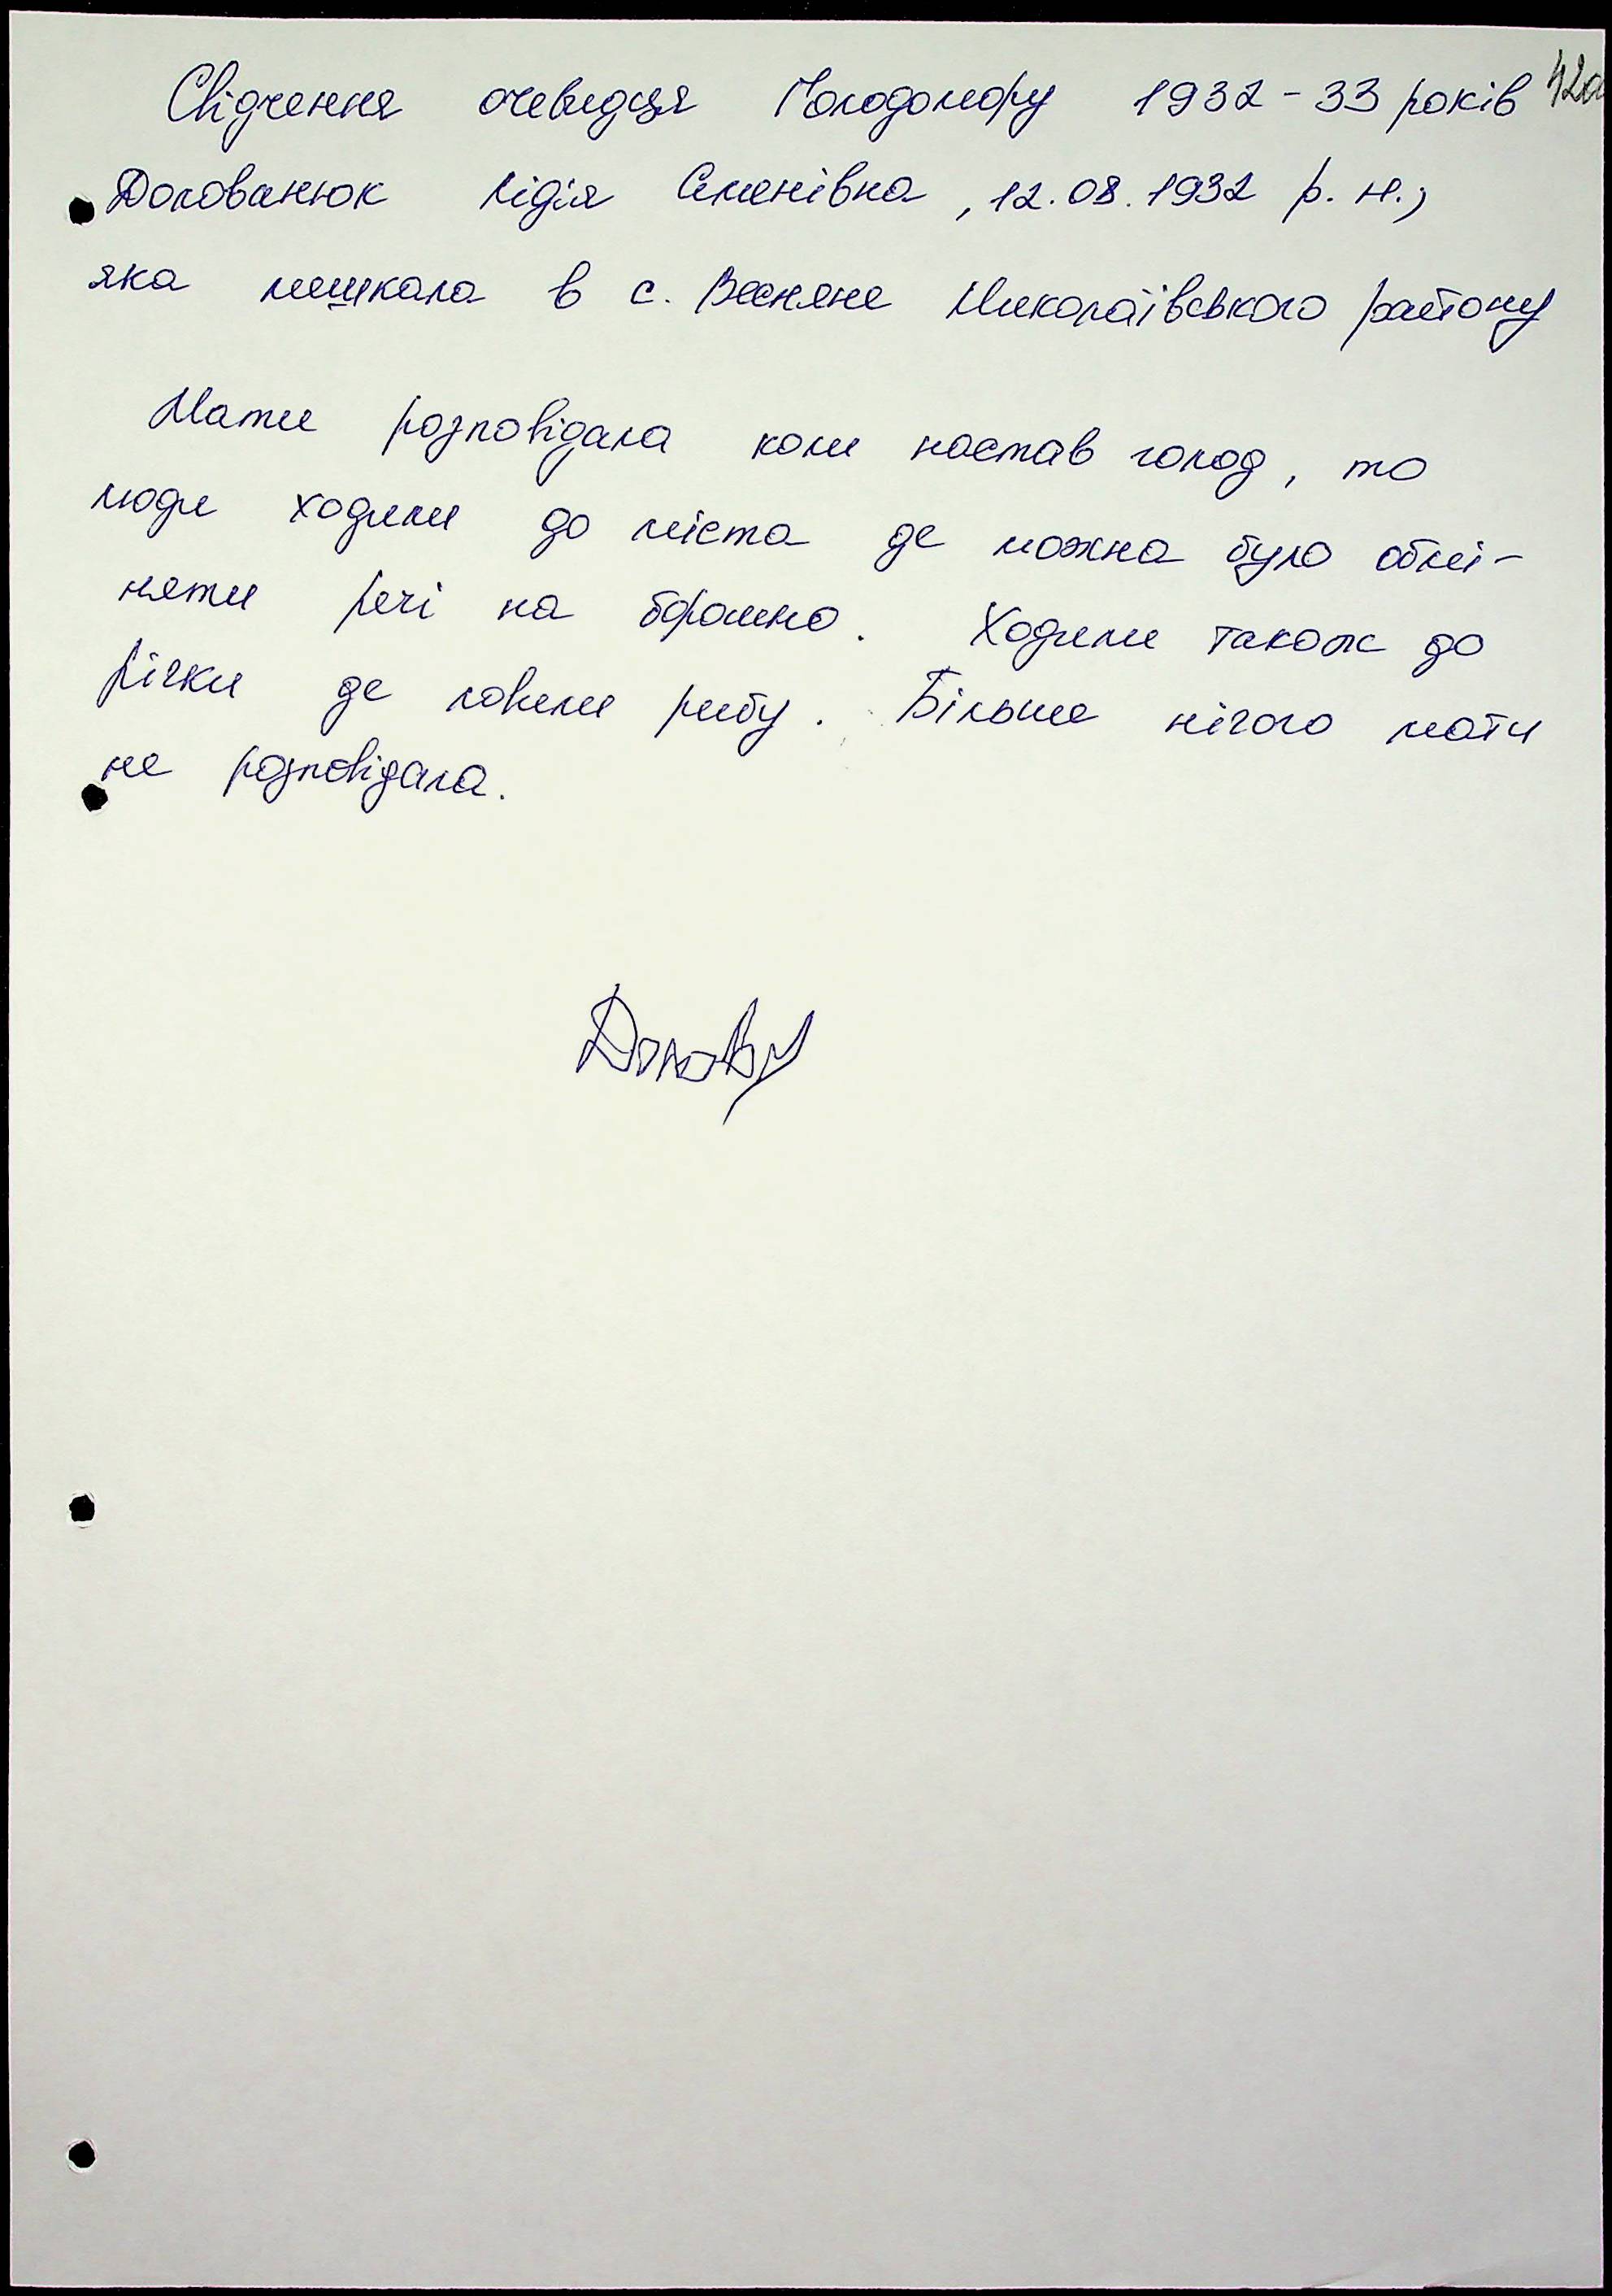 Свідчення очевидця Голодомору 1932-33 років 42а
Долованюк Лідія Семенівна, 12.08.1932 р. н.,
яка мешкала в с. Весняне Миколаївського району
Мати розповідала коли настав голод, то
люди ходили до міста де можна було обмі-
няти речі на борошно. Ходили також до
річки де ловили рибу. Більше нічого мати
не розповідала.